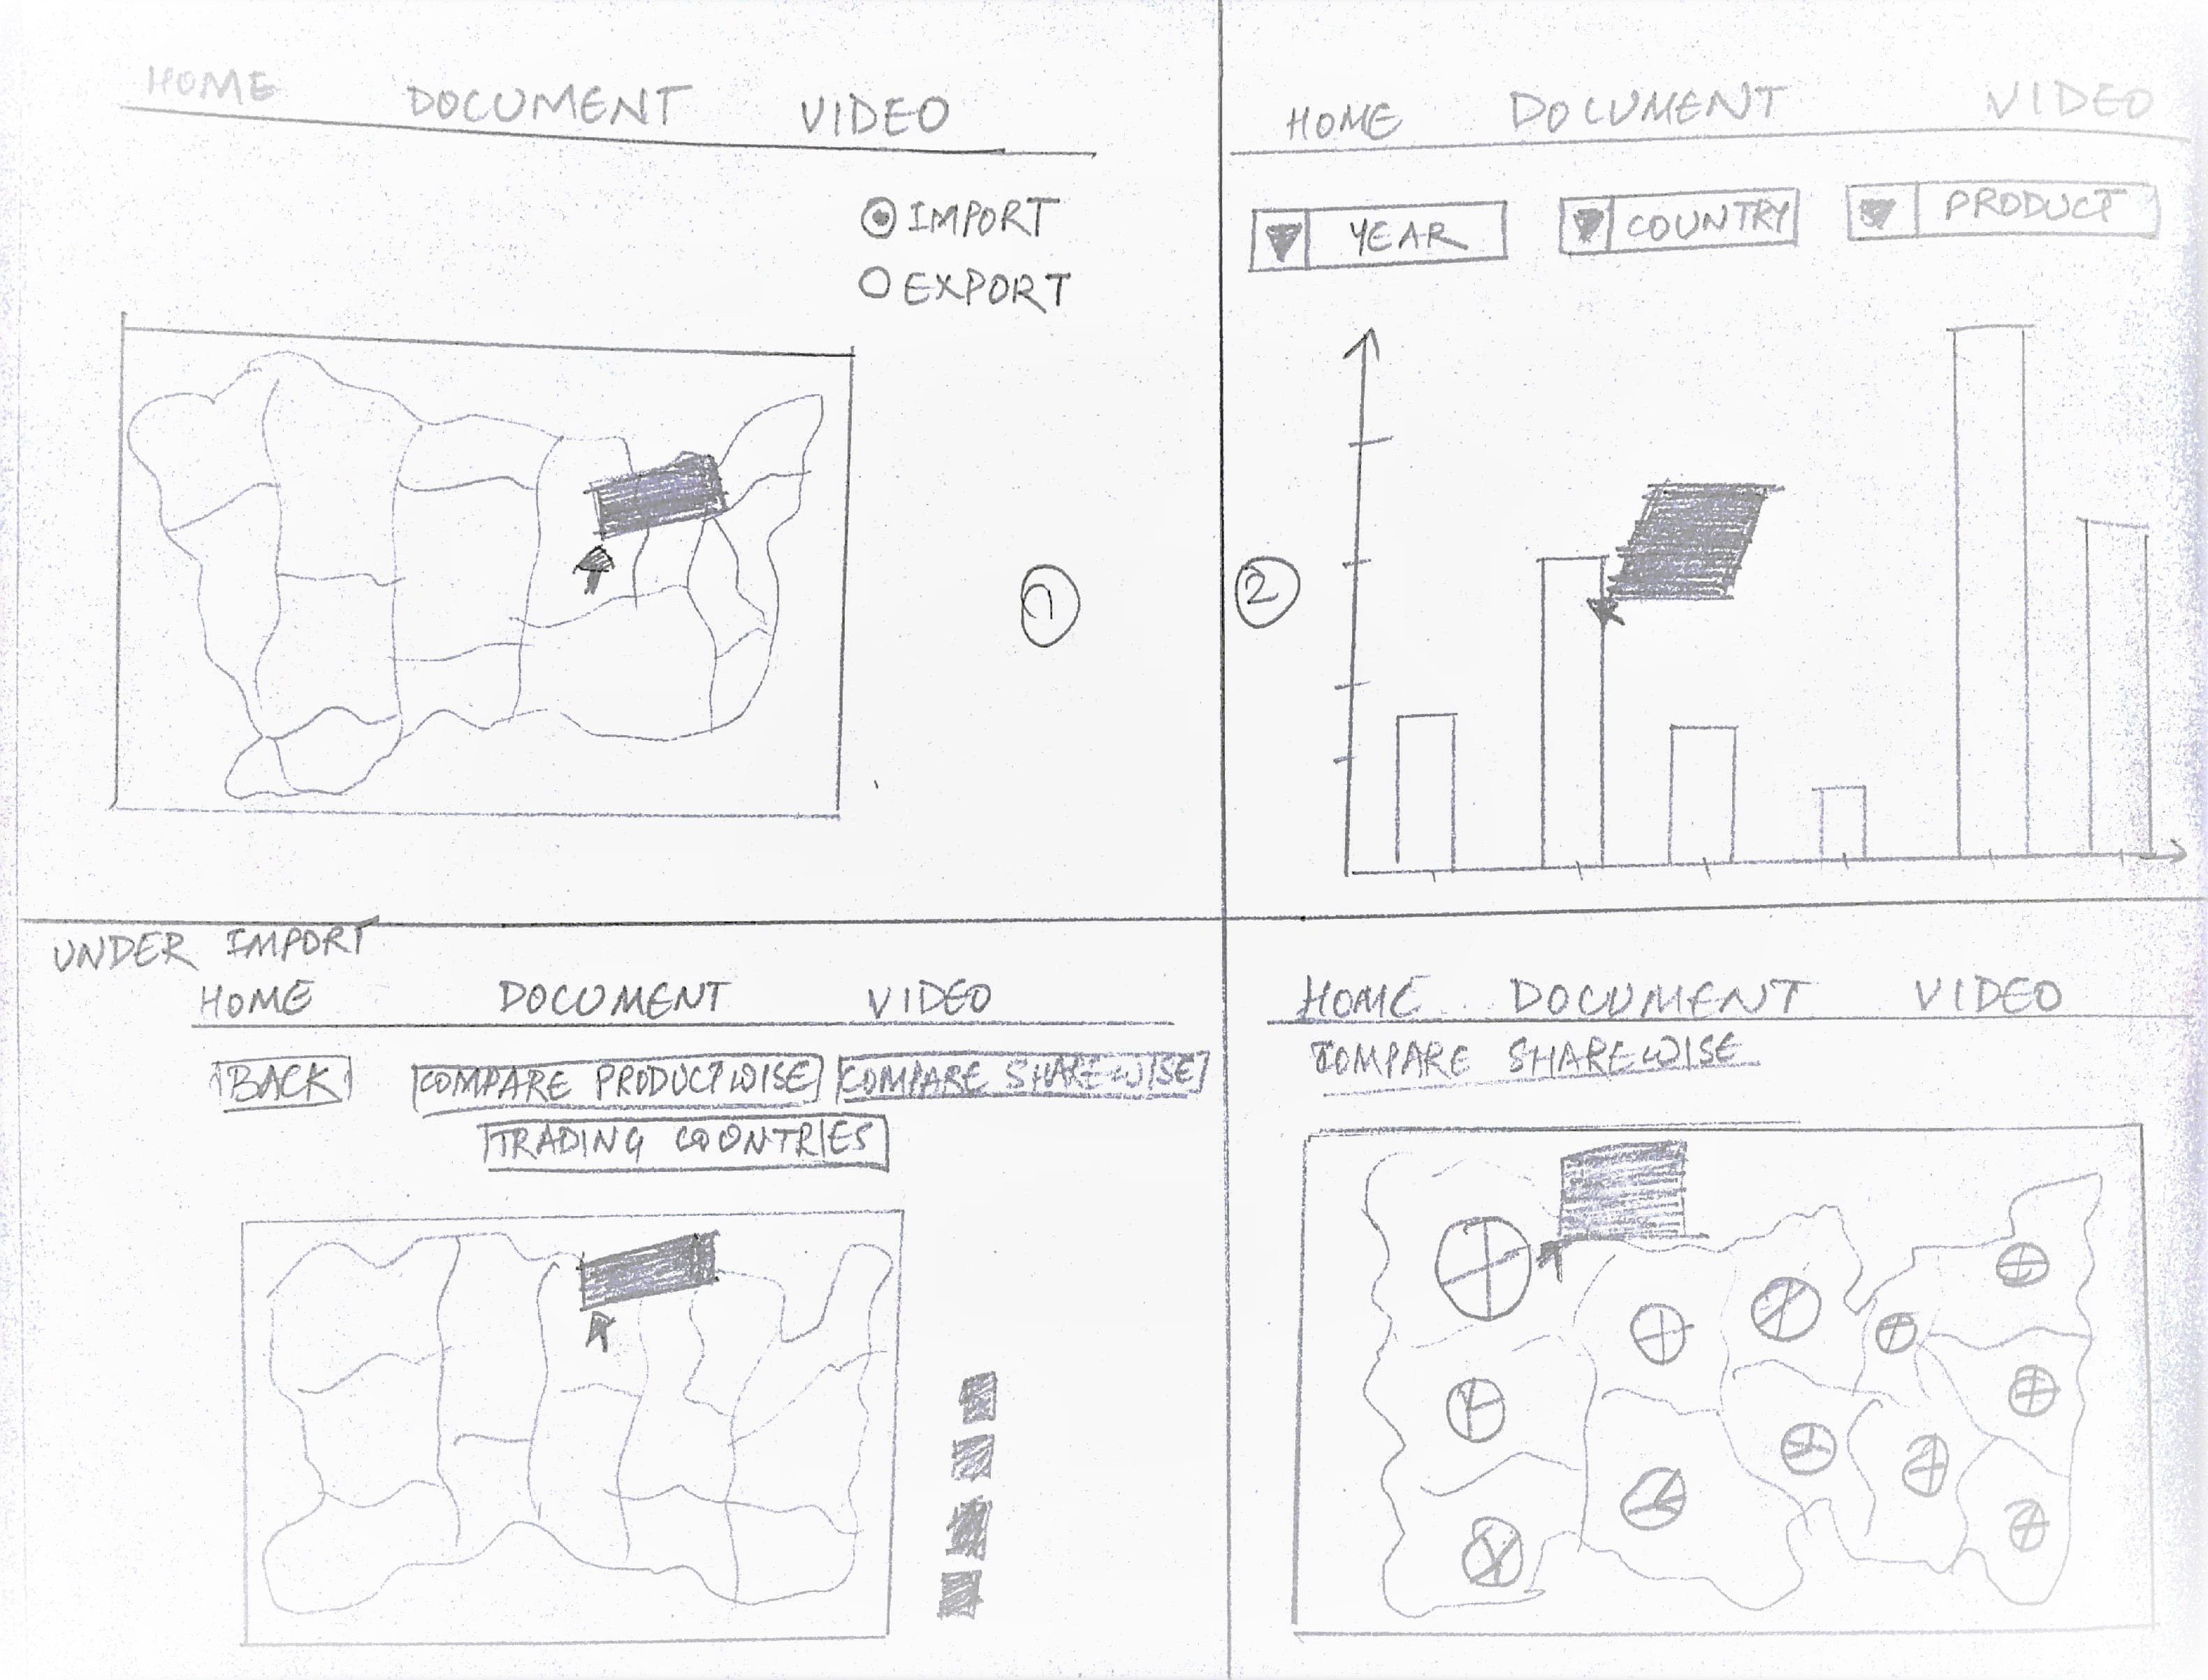 HOME DOCUMENT VIDEO
IMPORT
EXPORT
1
HOME DOCUMENT VIDEO
YEAR COUNTRY PRODUCT
2
UNDER IMPORT
HOME DOCUMENT VIDEO
BACK COMPARE PRODUCTWISE COMPARE SHAREWISE
TRADING COONTRIES
HOME DOCUMENT VIDEO
COMPARE SHAREWISE